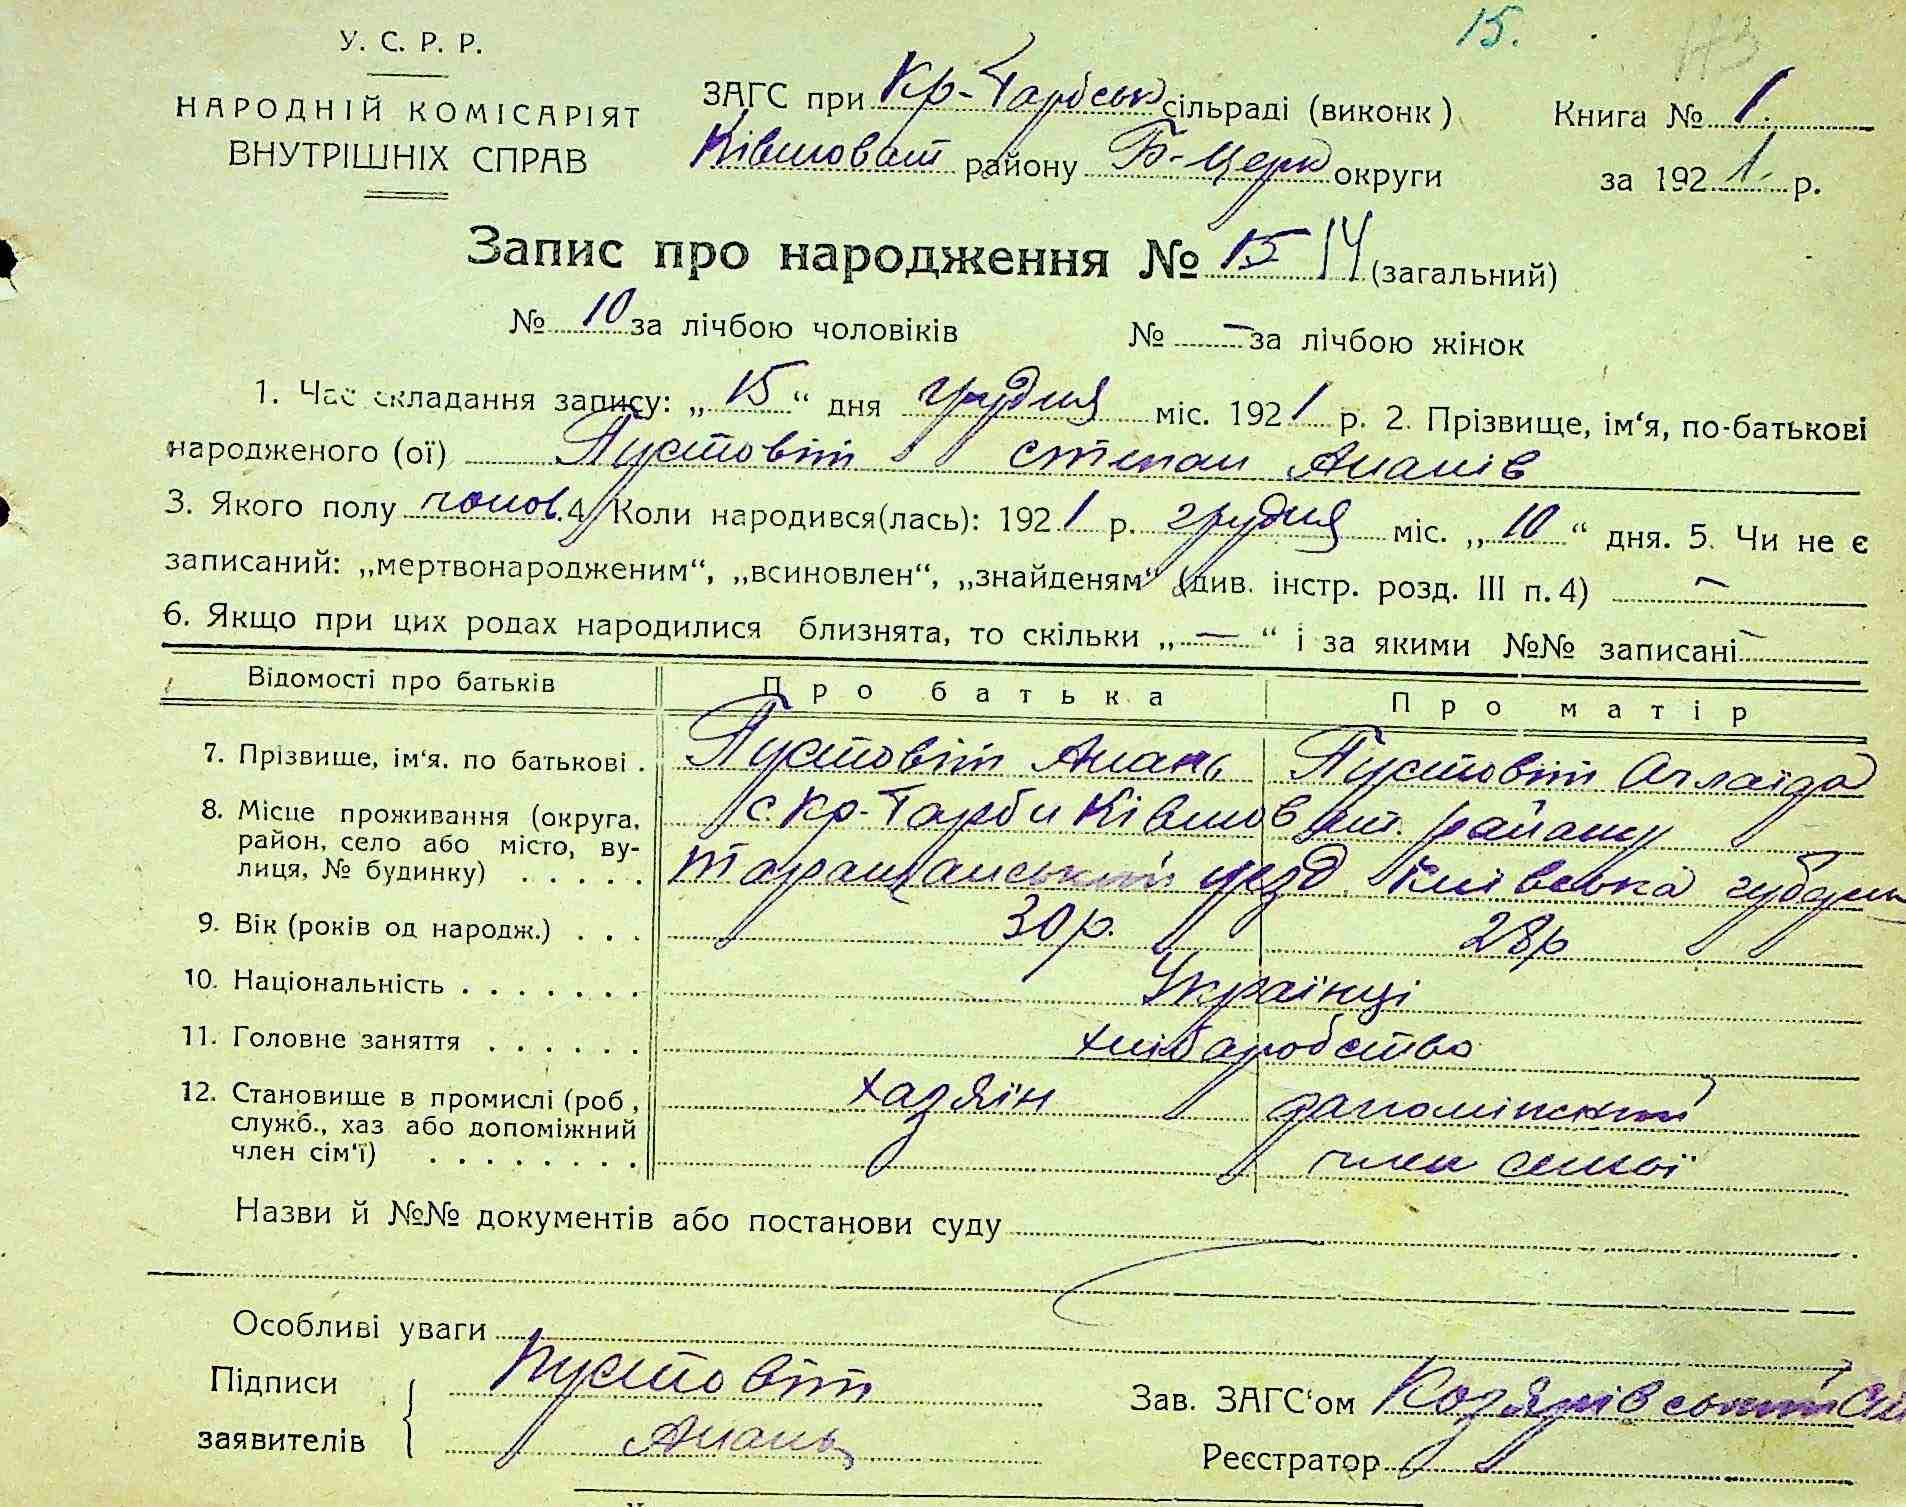 15.
У. С. Р. Р.
НАРОДНІЙ КОМІСАРІЯТ
ВНУТРІШНІХ СПРАВ
ЗАГС при Кр-Тарбськ сільраді (виконк)
Ківшоват району Б-Церк округи
Книга № 1.
за 1921. р.
Запис про народження № 15 14 (загальний)
№ 10 за лічбою чоловіків № — за лічбою жінок
1. Час складання запису: „15“ дня грудня міс. 1921 р. 2. Прізвище, ім‘я, по-батькові
народженого (ої) Пустовіт степан Ананів
3. Якого полу чолов. 4. Коли народився(лась): 1921 р. грудня міс. „10“ дня. 5. Чи не є
записаний: „мертвонародженим“, „всиновлен“, „знайденям“ (див. інстр. розд. III п. 4) —
6. Якщо при цих родах народилися близнята, то скільки „—“ і за якими №№ записані —
Відомості про батьків Про батька Про матір
7. Прізвище, ім‘я. по батькові . Пустовіт Анань Пустовіт Аглаїда
8. Місце проживання (округа, район, село або місто, вулиця, № будинку) . . . . . с. Кр-Тарби Ківшоват. району
таращанський уезд Київська губерн
9. Вік (років од народж.) . . . 30 р. 28 р
10. Національність . . . . . . . Українці
11. Головне заняття . . . . . . хліборобство
12. Становище в промислі (роб, служб., хаз або допоміжний член сім‘ї) . . . . . . . . хазяїн
член семьї
Назви й №№ документів або постанови суду
Особливі уваги
Підписи заявителів Пустовіт
Анань
Зав. ЗАГС‘ом
Реєстратор